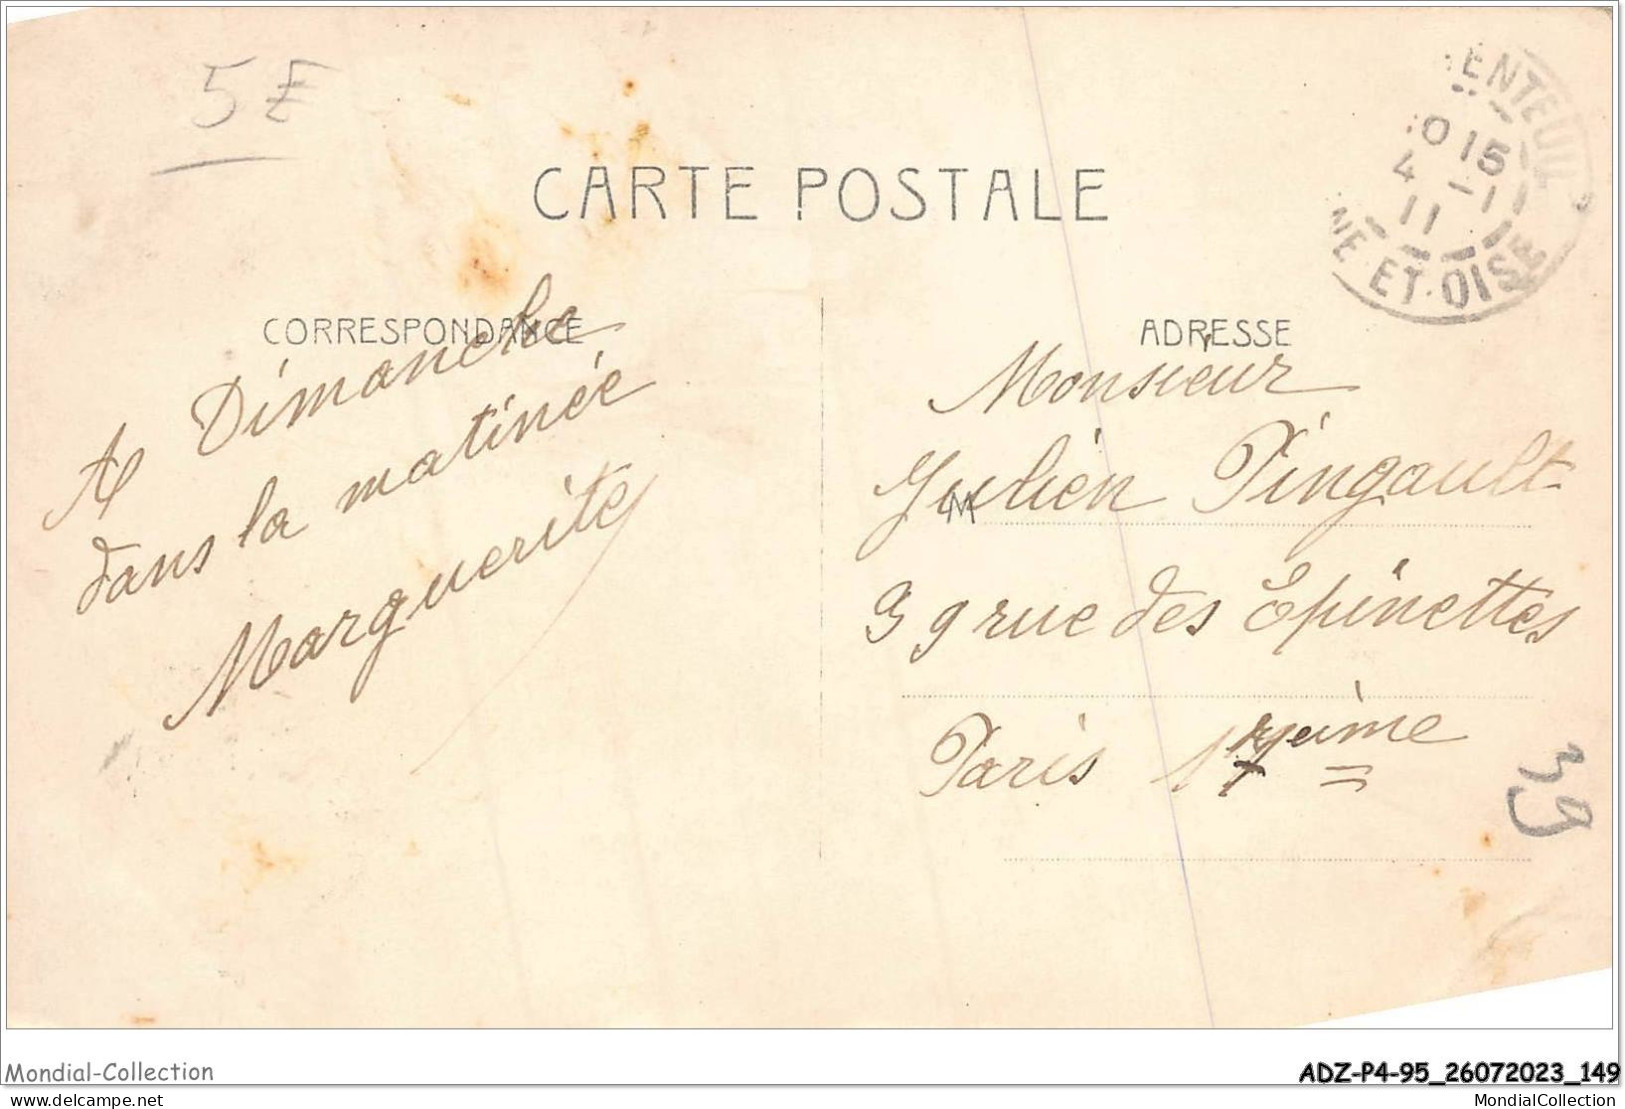 5 E
CARTE POSTALE
ENTEUIL
15
4 -11
11
NE-ET-OISE
CORRESPONDANCE
A Dimanche
dans la matinée
Marguerite
ADRESSE
Monsieur
Julien Pingault
M
39 rue des Epinettes
Paris 17 eime
39
Mondial-Collection
ADZ-P4-95_26072023_149
delcampe.net
MondialCollection